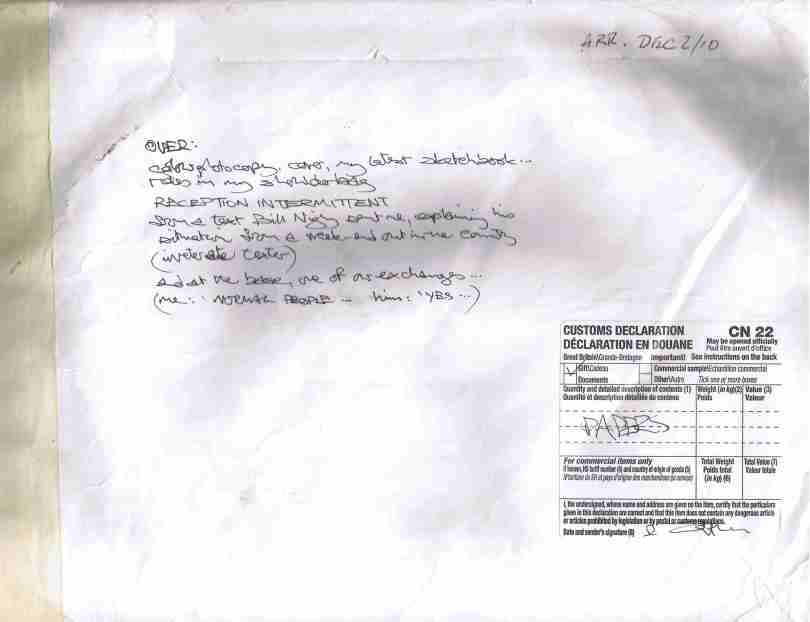 ARR. DEC 2/10
OVER:
color photocopy, cover, my latest sketchbook...
rides in my shoulder bag
RECEPTION INTERMITTENT
from a text Bill Nighy sent me, explaining his
situation from a weekend out in the country
(inveterate texter)
and at the below, one of our exchanges...
(me: 'NORMAL PEOPLE... him: 'YES...)
CUSTOMS DECLARATION CN 22
DÉCLARATION EN DOUANE May be opened officially
Peut être ouvert d'office
Great Britain\Grande-Bretagne Important! See instructions on the back
Gift\Cadeau Commercial sample\Echantillon commercial
Documents Other\Autre Tick one or more boxes
Quantity and detailed description of contents (1) Weight (in kg)(2) Value (3)
Quantité et description détaillée du contenu Poids Valeur
PAPERS
For commercial items only Total Weight Total Value (7)
If known, HS tariff number (4) and country of origin of goods (5) Poids total Valeur totale
N°tarifaire du SH et pays d'origine des marchandises (si connus) (in kg) (6)
I, the undersigned, whose name and address are given on the item, certify that the particulars
given in this declaration are correct and that this item does not contain any dangerous article
or articles prohibited by legislation or by postal or customs regulations.
Date and sender's signature (8)